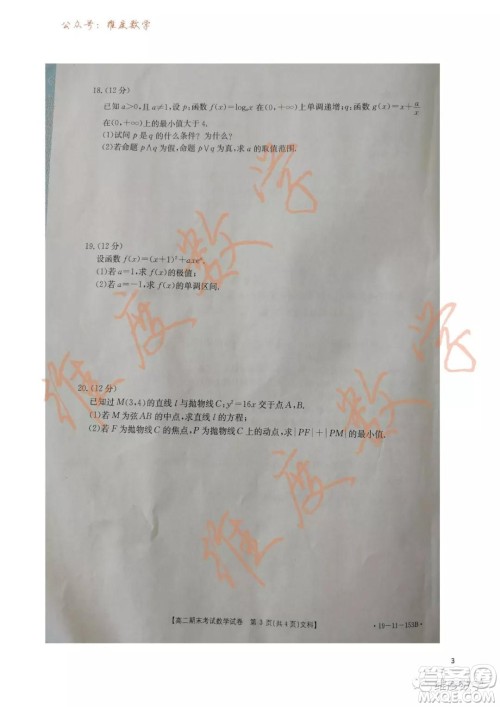 公众号：维度数学
18.(12分)
已知a>0,且a≠1,设p:函数f(x)=logₐx在(0,+∞)上单调递增;q:函数g(x)=x+a/x
在(0,+∞)上的最小值大于4.
(1)试问p是q的什么条件?为什么?
(2)若命题p∧q为假,命题p∨q为真,求a的取值范围.
19.(12分)
设函数f(x)=(x+1)²+axeˣ.
(1)若a=1,求f(x)的极值;
(2)若a=-1,求f(x)的单调区间.
20.(12分)
已知过M(3,4)的直线l与抛物线C:y²=16x交于点A,B.
(1)若M为弦AB的中点,求直线l的方程;
(2)若F为抛物线C的焦点,P为抛物线C上的动点,求|PF|+|PM|的最小值.
维度数学
维度数学
【高二期末考试数学试卷 第3页(共4页)文科】
·19-11-153B·
3